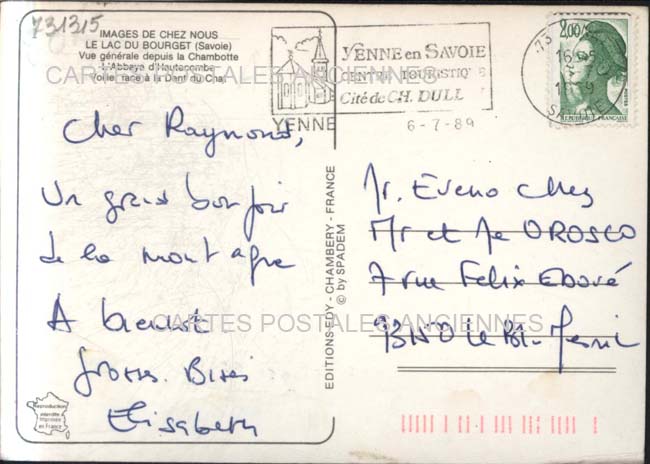 731315
IMAGES DE CHEZ NOUS
LE LAC DU BOURGET (Savoie)
Vue générale depuis la Chambotte
L'Abbaye d'Hautecombe
Voile face à la Dent du Chat
CARTES POSTALES ANCIENNES
YENNE
YENNE en SAVOIE
CENTRE TOURISTIQUE
Cité de CH. DULL
6-7-89
73
SAVOIE
2,00
REPUBLIQUE FRANCAISE
Cher Raymond,
Un grand bonjour
de la montagne
A bientôt
grosses Bises
Elisabeth
EDITIONS EDY - CHAMBERY - FRANCE
© by SPADEM
Mr. Eveno chez
Mr et Me OROSCO
7 rue Felix Eboué
93150 le Bl. Mesnil
CARTES POSTALES ANCIENNES
Reproduction
interdite
Imprimée
en France